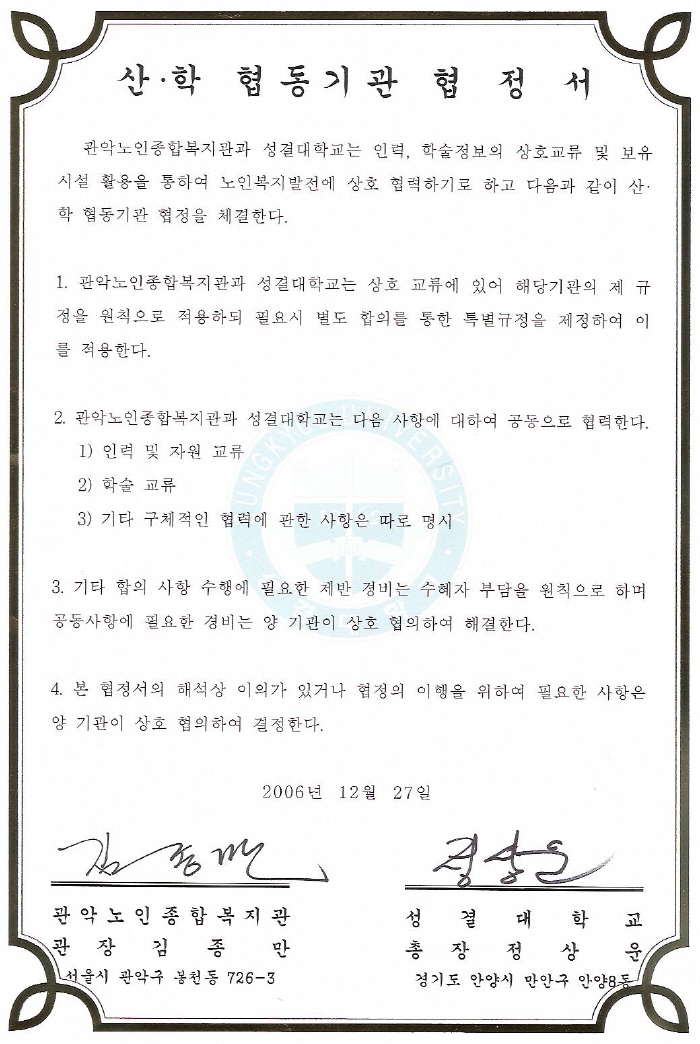 산·학 협동기관 협정서
관악노인종합복지관과 성결대학교는 인력, 학술정보의 상호교류 및 보유
시설 활용을 통하여 노인복지발전에 상호 협력하기로 하고 다음과 같이 산·
학 협동기관 협정을 체결한다.
1. 관악노인종합복지관과 성결대학교는 상호 교류에 있어 해당기관의 제 규
정을 원칙으로 적용하되 필요시 별도 합의를 통한 특별규정을 제정하여 이
를 적용한다.
2. 관악노인종합복지관과 성결대학교는 다음 사항에 대하여 공동으로 협력한다.
1) 인력 및 자원 교류
2) 학술 교류
3) 기타 구체적인 협력에 관한 사항은 따로 명시
UNGKYUL UNIVERSITY
3. 기타 합의 사항 수행에 필요한 제반 경비는 수혜자 부담을 원칙으로 하며
공동사항에 필요한 경비는 양 기관이 상호 협의하여 해결한다.
4. 본 협정서의 해석상 이의가 있거나 협정의 이행을 위하여 필요한 사항은
양 기관이 상호 협의하여 결정한다.
2006년 12월 27일
김종만
정상운
관악노인종합복지관
관장김종만
서울시 관악구 봉천동 726-3
성결대학교
총장정상운
경기도 안양시 만안구 안양8동